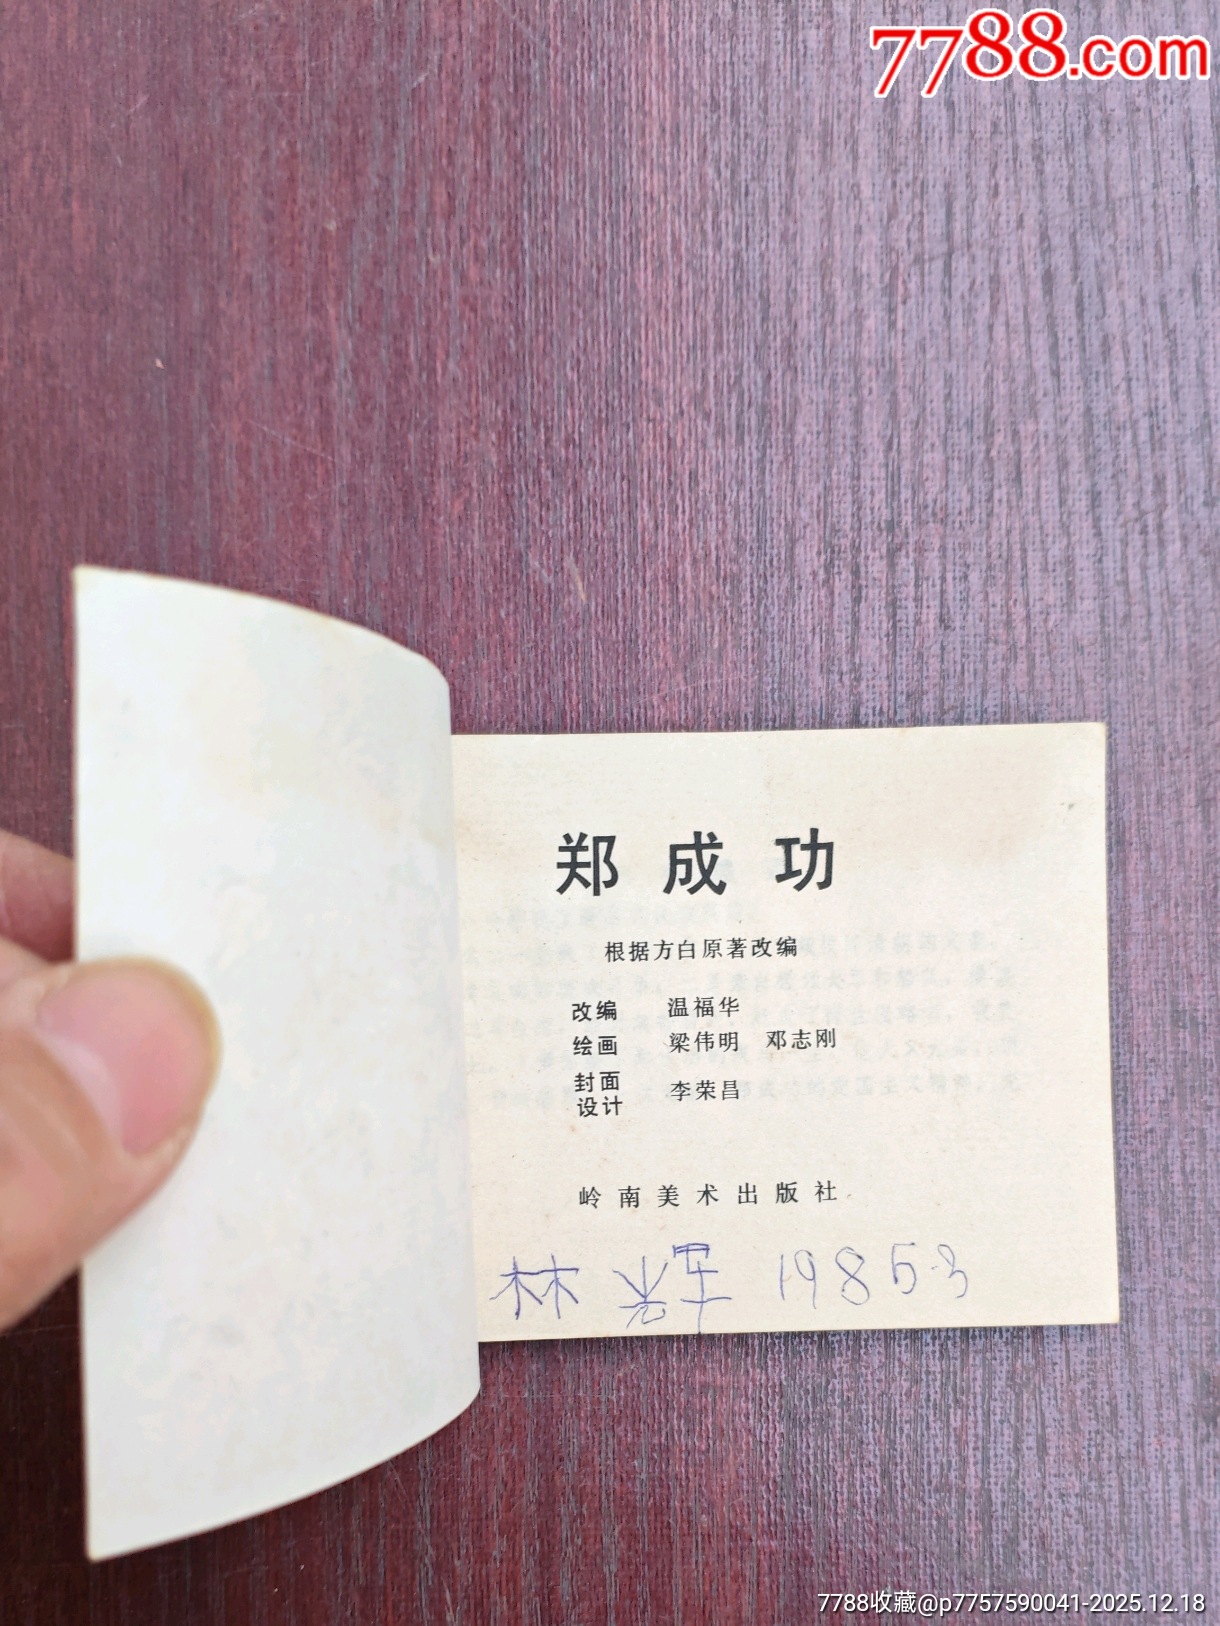 7788.com
郑成功
根据方白原著改编
改编 温福华
绘画 梁伟明 邓志刚
封面设计 李荣昌
岭南美术出版社
林光军 1985.3
7788收藏@p7757590041-2025.12.18